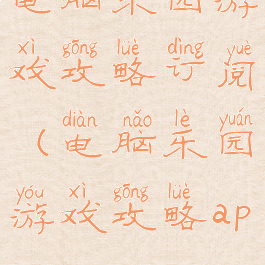 电脑乐园游
xì gōng lüè dìng yuè
戏攻略订阅
diàn nǎo lè yuán
(电脑乐园
yóu xì gōng lüè
游戏攻略ap